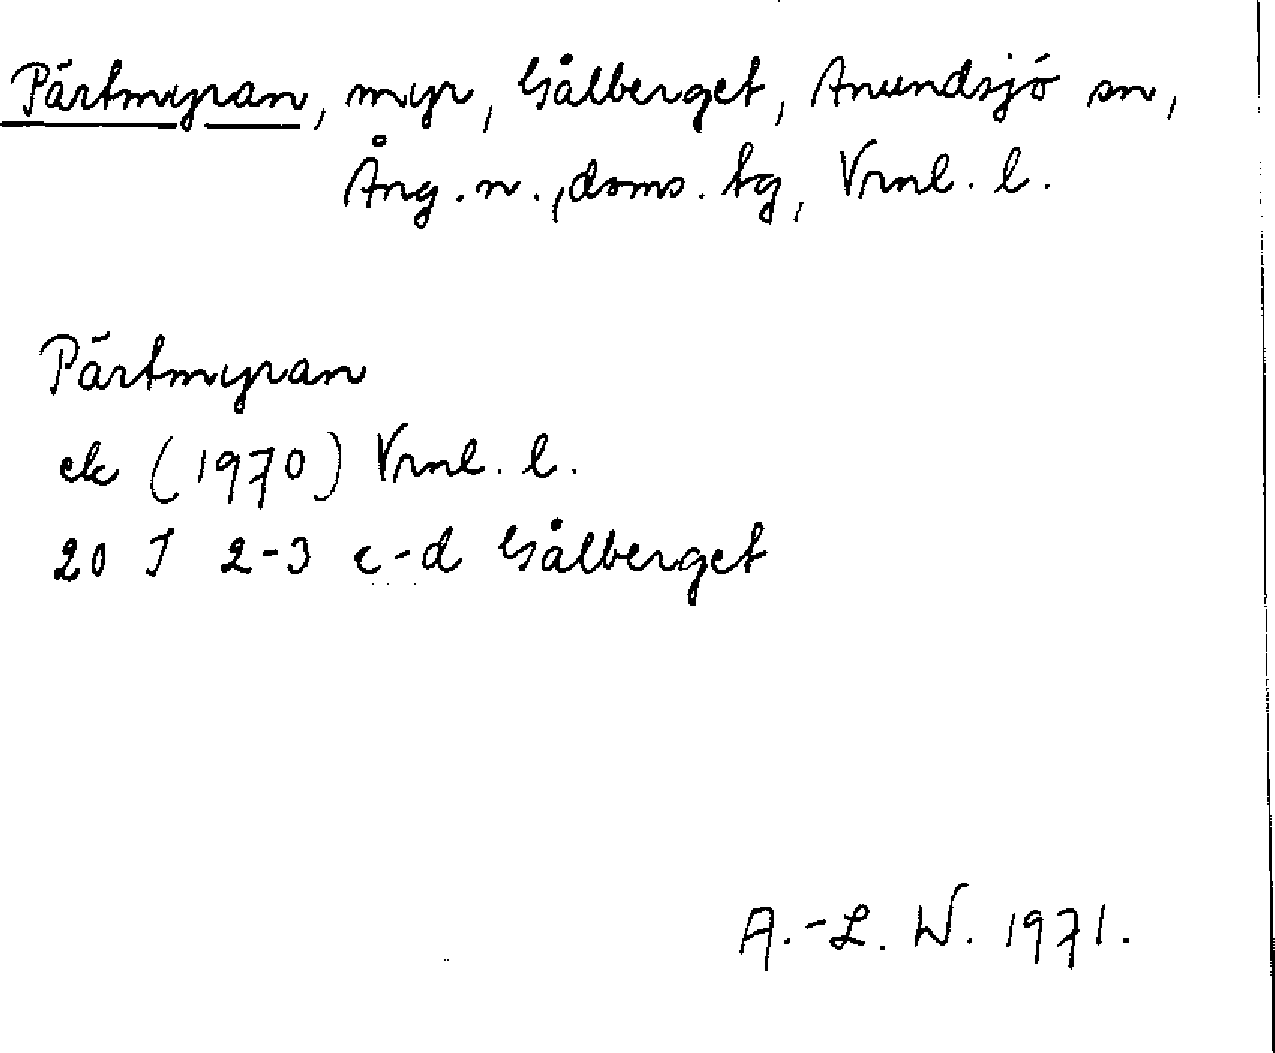 Pärtmyran, myr, Gålberget, Anundsjö sn,
Ång. n., doms. tg, Vrnl. l.
Pärtmyran
ek (1970) Vrnl. l.
20 J 2-3 c-d Gålberget
A.-L. W. 1971.